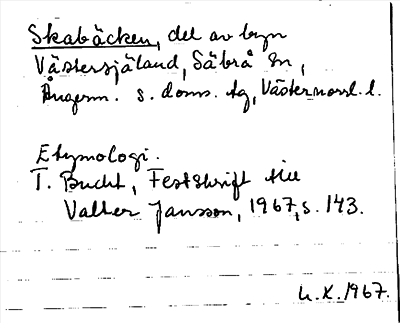 Skabäcken, del av byn
Västersjäland, Säbrå sn,
Ångerm. s. doms. tg, Västernorrl. l.
Etymologi.
T. Bucht, Festskrift till
Valter Jansson, 1967, s. 143.
h.K. 1967.